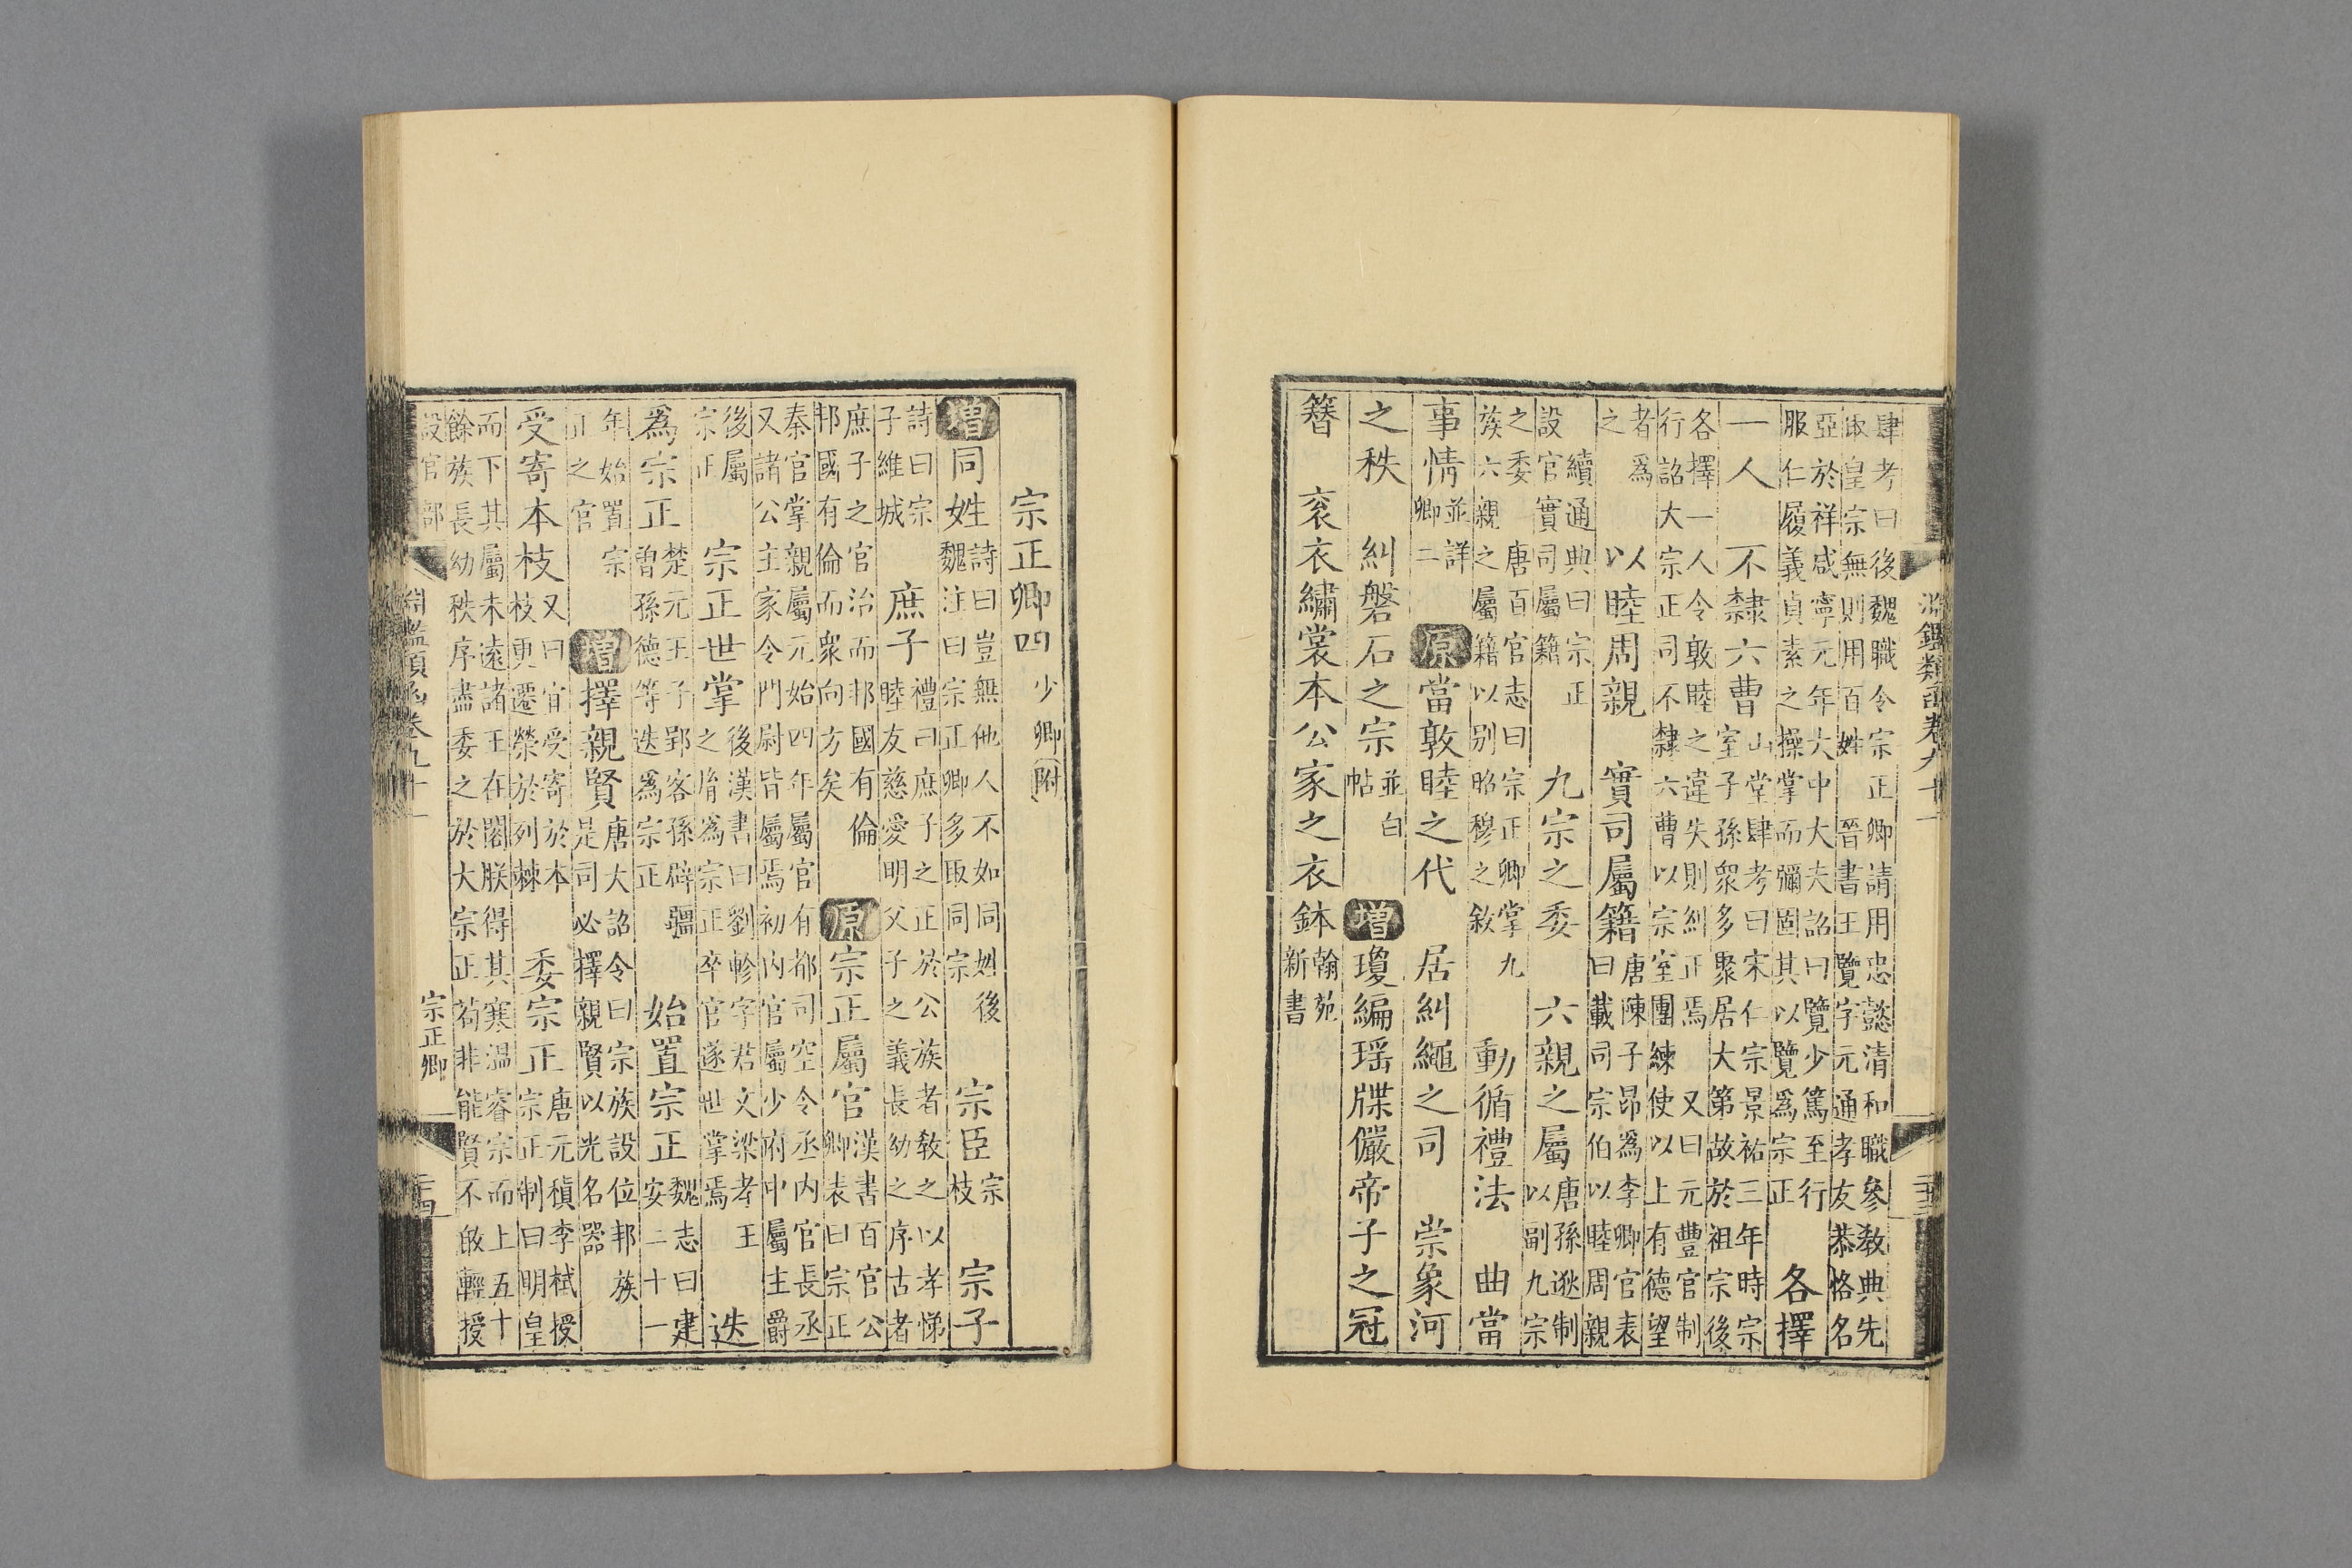 淵鑑類函卷九十一
二十三
肆考曰後魏職令宗正卿請用忠懿清和職參教典先
取皇宗無則用百姓 晉書王覽字元通孝友恭恪名
亞於祥咸寧元年大中大夫詔曰覽少篤至行
服仁履義貞素之操掌而彌固其以覽爲宗正 各擇
一人 不隸六曹 山堂肆考曰宋仁宗景祐三年時宗
室子孫衆多聚居大第故於祖宗後
各擇一人令敦睦之違失則糾正焉 又曰元豐官制
行詔大宗正司不隸六曹以宗室團練使以上有德望
者爲
之 以睦周親 實司屬籍 唐陳子昂爲李卿官表
曰載同宗伯以睦周親
續通典曰宗正
設官實司屬籍 九宗之委 六親之屬 唐孫逖制
以副九宗
之委 唐百官志曰宗正卿掌九
族六親之屬籍以别昭穆之敘 動循禮法 曲當
事情 並詳
卿二 原 當敦睦之代 居糾繩之司 崇象河
之秩 糾磐石之宗 並白
帖 增 瓊編瑤牒儼帝子之冠
簪 衮衣繡裳本公家之衣鉢 翰苑
新書
宗正卿四 少卿附
增 同姓 詩曰豈無他人不如同姓後
魏詩注曰宗正卿多取同宗 宗臣 宗
枝 宗子
詩曰宗
子維城 庶子 禮曰庶子之正於公族者教之以孝悌
睦友慈愛明父子之義長幼之序古者
庶子之官治而邦國有倫
邦國有倫而衆向方矣 原 宗正屬官 漢書百官公
卿表曰宗正
秦官掌親屬元始四年屬官有都司空令丞内官長丞
又諸公主家令門尉皆屬焉初内官屬少府中屬主爵
後屬
宗正 宗正世掌 後漢書曰劉軫字君文梁孝王
之胤爲宗正卒官遂世掌焉 迭
爲宗正 楚元王子郢客孫辟疆
曾孫德等迭爲宗正 始置宗正 魏志曰建
安二十一
年始置宗
正之官 增 擇親賢 唐大詔令曰宗族設位邦族
是司必擇親賢以光名器
受寄本枝 又曰宜受寄於本
枝更遷榮於列棘 委宗正 唐元稹李栻授
宗正制曰明皇
而下其屬未遠諸王在閣朕得其寒温睿宗而上五十
餘族長幼秩序盡委之於大宗正苟非能賢不敢輕授
設官部
淵鑑類函卷九十一
宗正卿
二十四